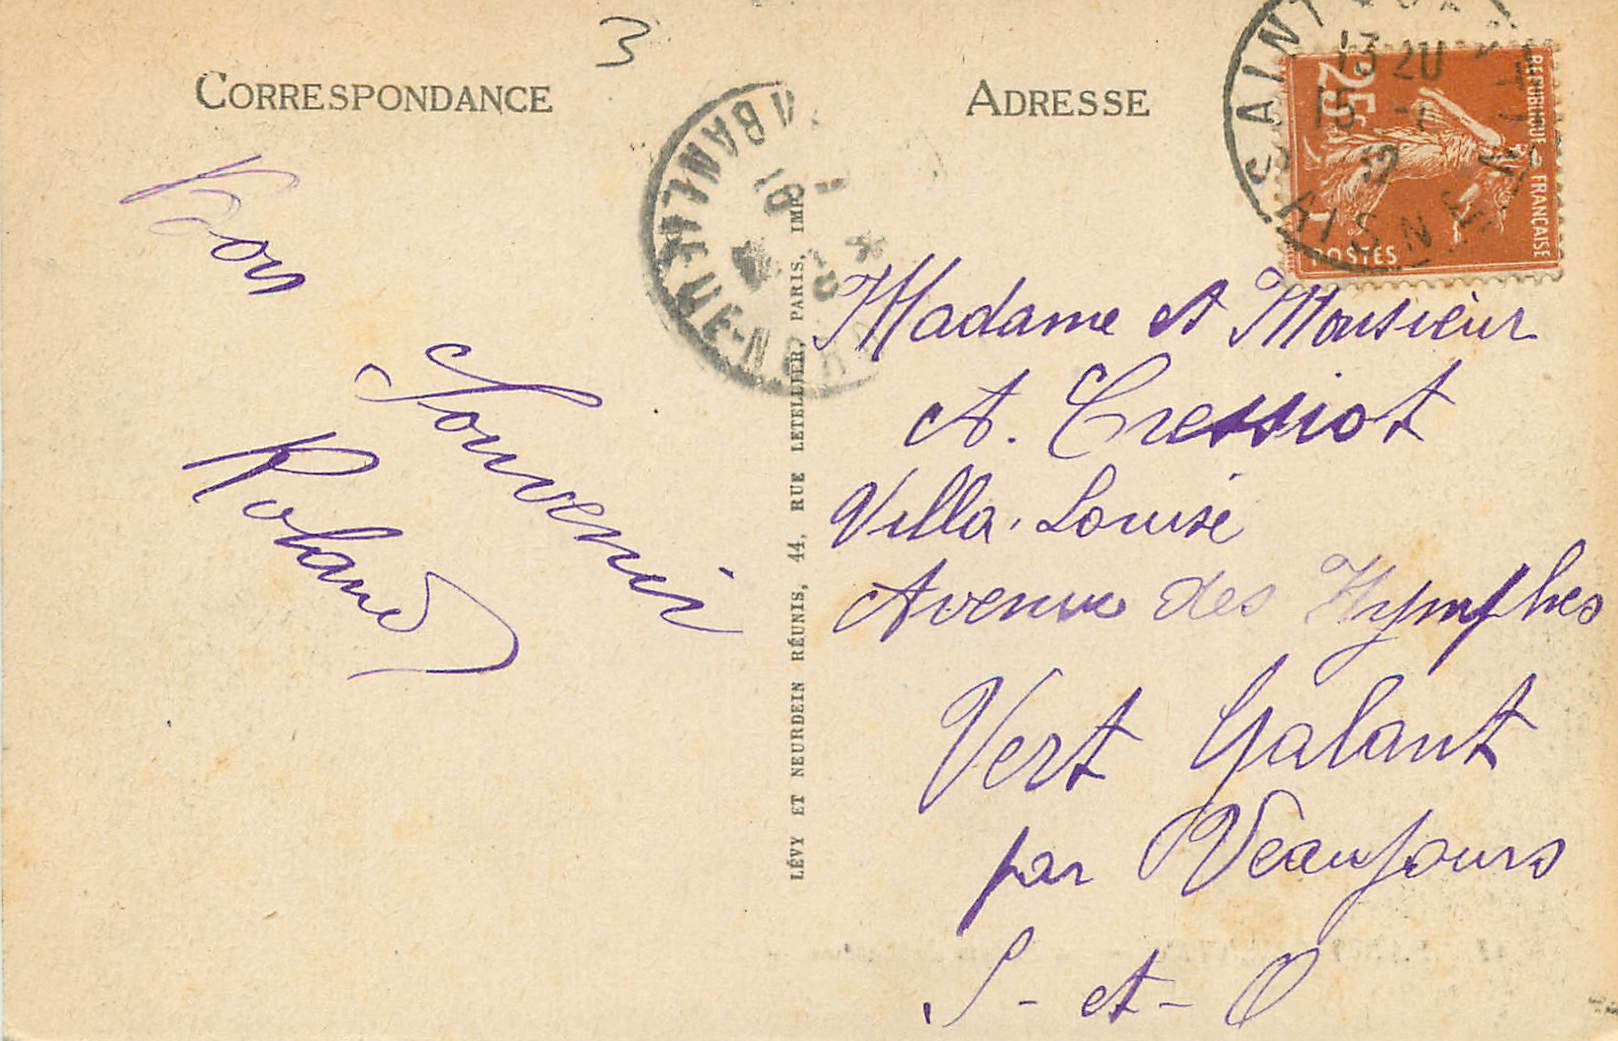 3
CORRESPONDANCE
ADRESSE
Bon
Souvenir
Roland
LÉVY ET NEURDEIN RÉUNIS, 44, RUE LETELLIER, PARIS, IMP.
Madame et Monsieur
A. Cressiot
Villa Louise
Avenue des Nymphes
Vert Galant
par Veaujours
S-et-O
SAINT
13 20
15 -
32
AISNE
25c
REPUBLIQUE FRANÇAISE
POSTES
18